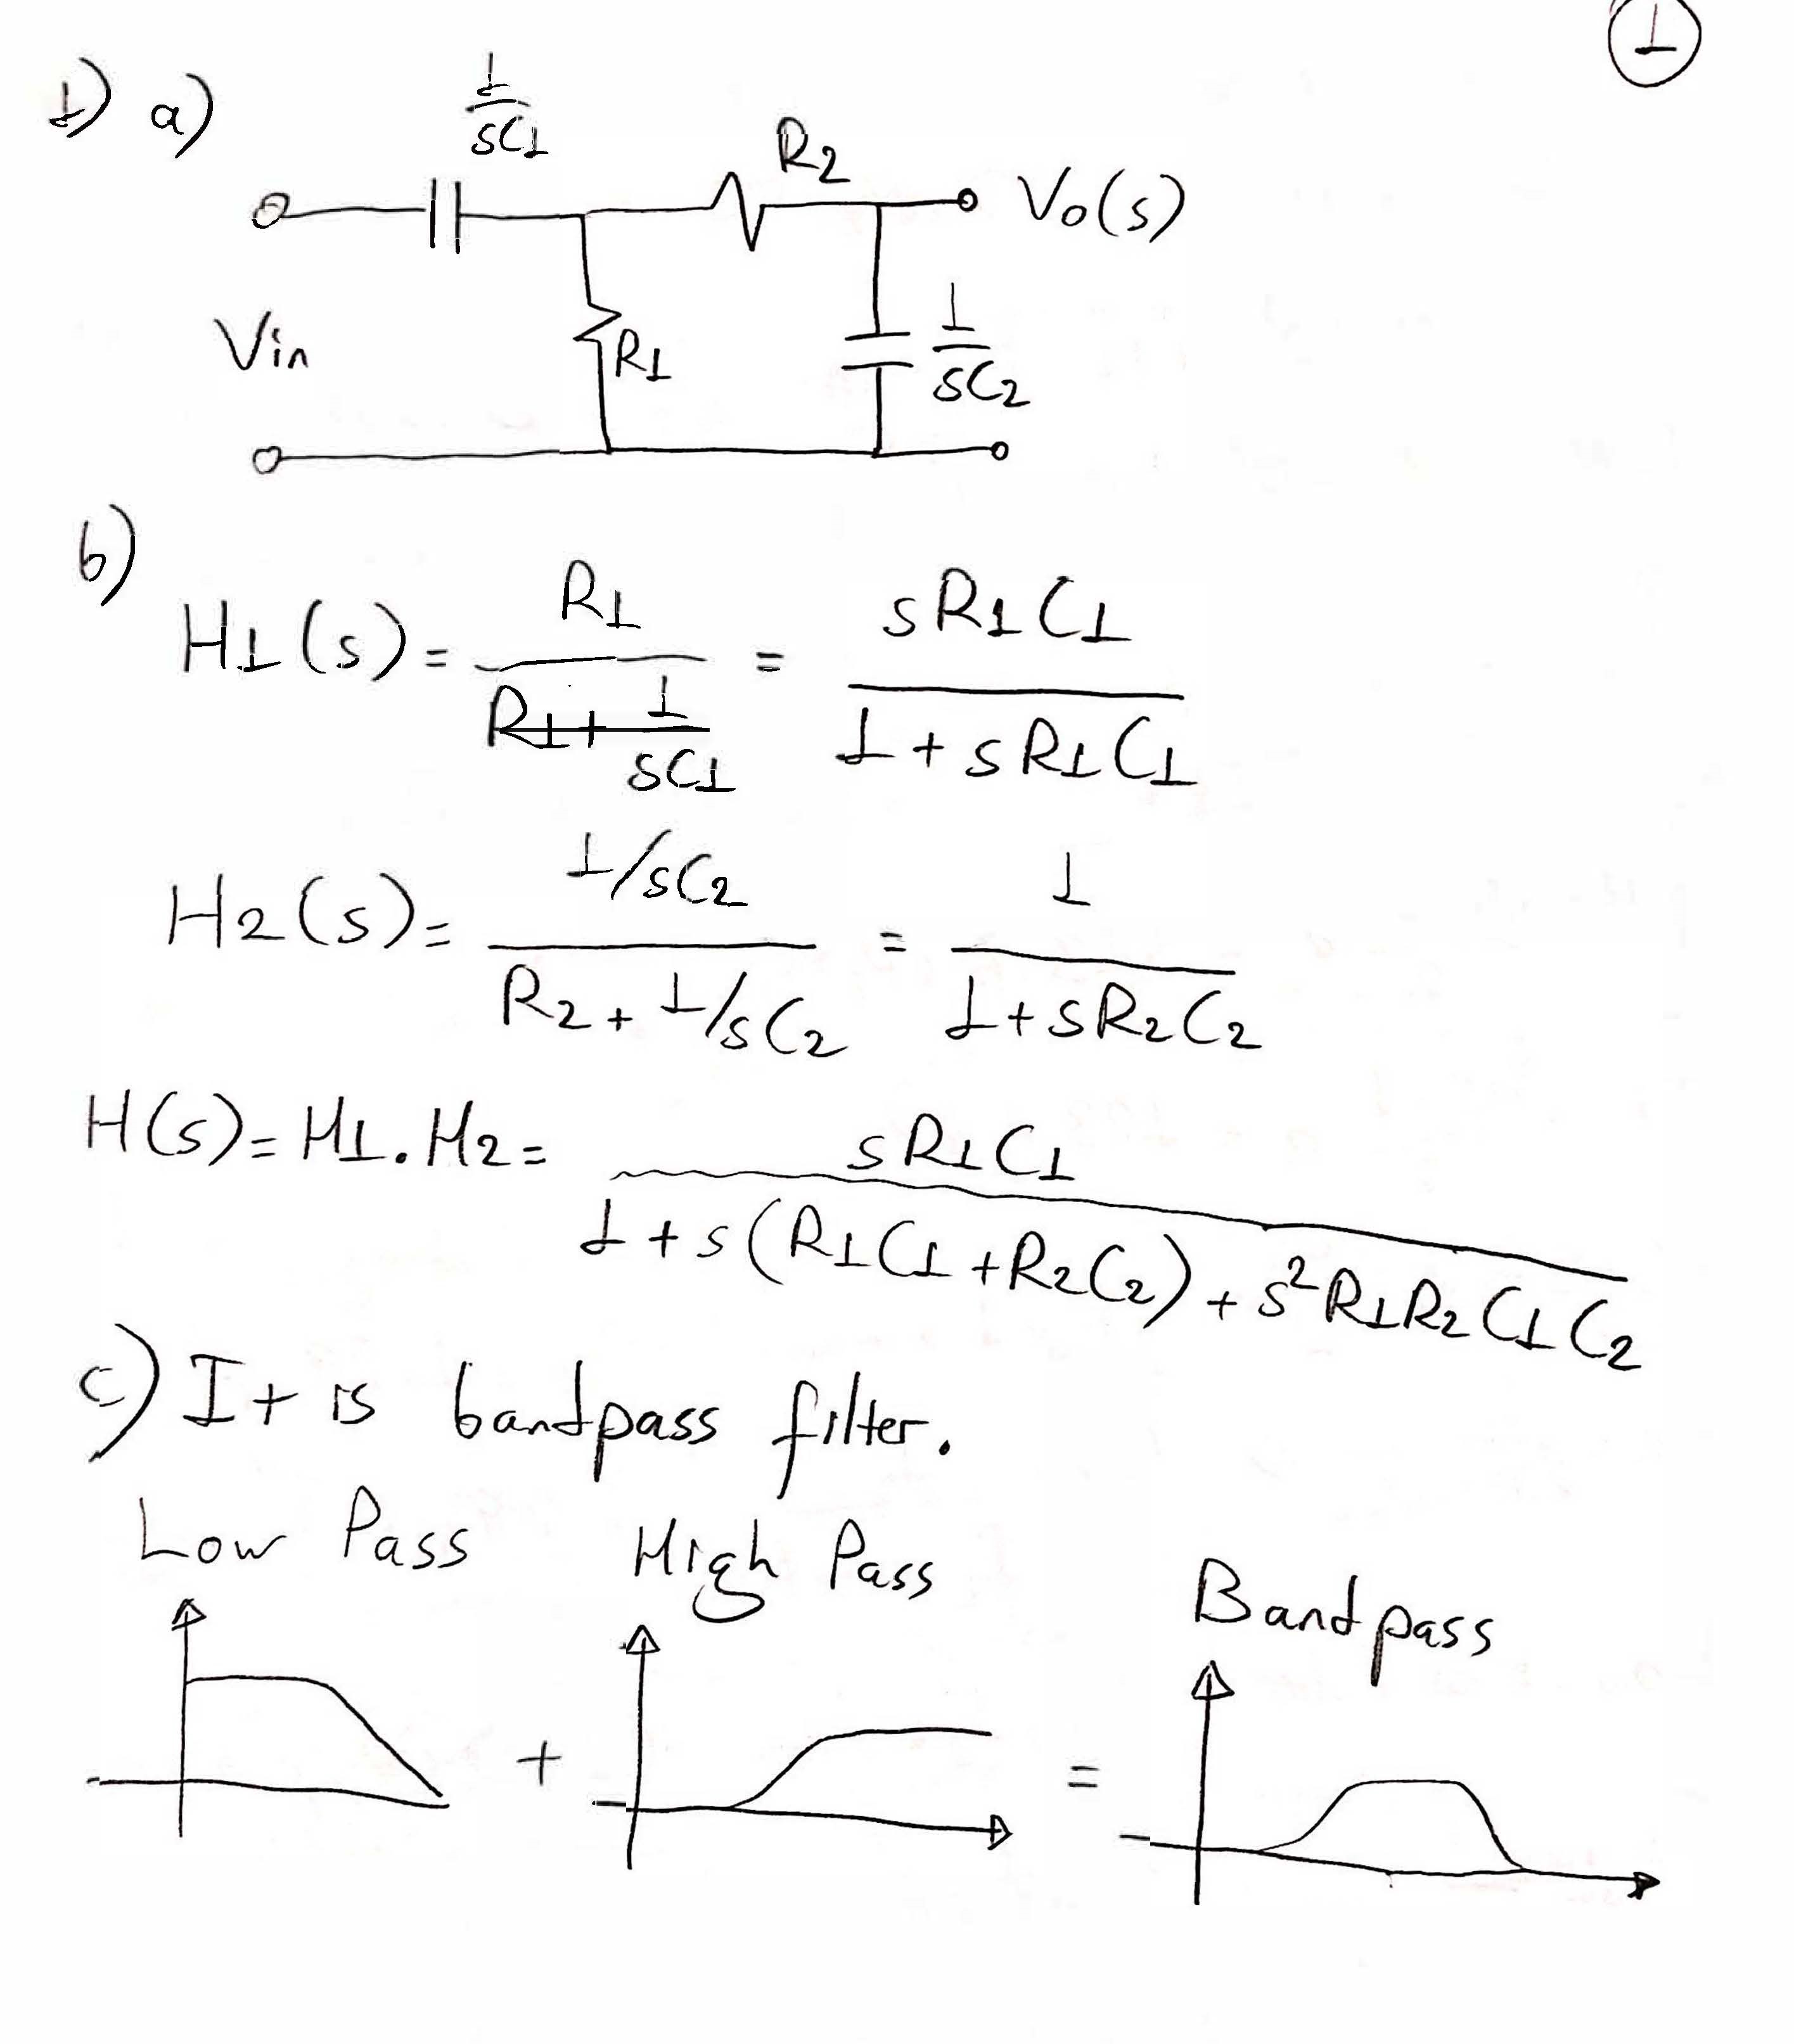 1
1) a)
1/sC1
R2
Vo(s)
Vin
R1
1/sC2
b)
H1(s) = R1/(R1 + 1/sC1) = sR1C1/(1 + sR1C1)
H2(s) = (1/sC2)/(R2 + 1/sC2) = 1/(1 + sR2C2)
H(s) = H1 . H2 = sR1C1/(1 + s(R1C1 + R2C2) + s²R1R2C1C2)
c) It is bandpass filter.
Low Pass
High Pass
Bandpass
+ =